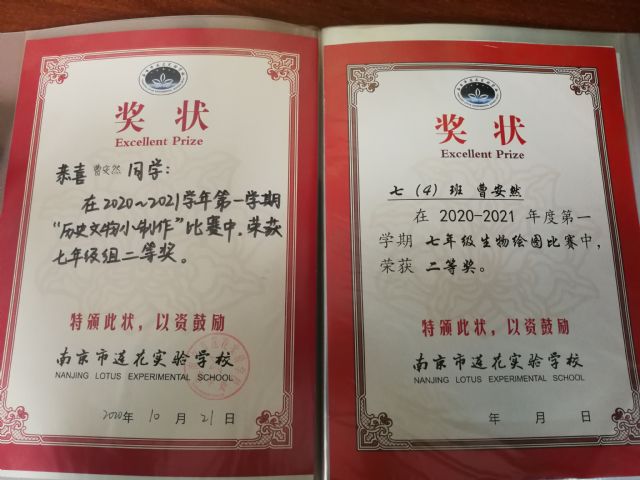 奖状
Excellent Prize
恭喜 曹安然 同学:
在2020~2021学年第一学期
“历史文物小制作”比赛中,荣获
七年级组二等奖。
特颁此状，以资鼓励
南京市莲花实验学校
NANJING LOTUS EXPERIMENTAL SCHOOL
2020年 10 月 21 日
奖状
Excellent Prize
七 (4) 班 曹安然
在 2020-2021 年度第一
学期 七年级生物绘图比赛中,
荣获 二等奖。
特颁此状，以资鼓励
南京市莲花实验学校
NANJING LOTUS EXPERIMENTAL SCHOOL
年 月 日